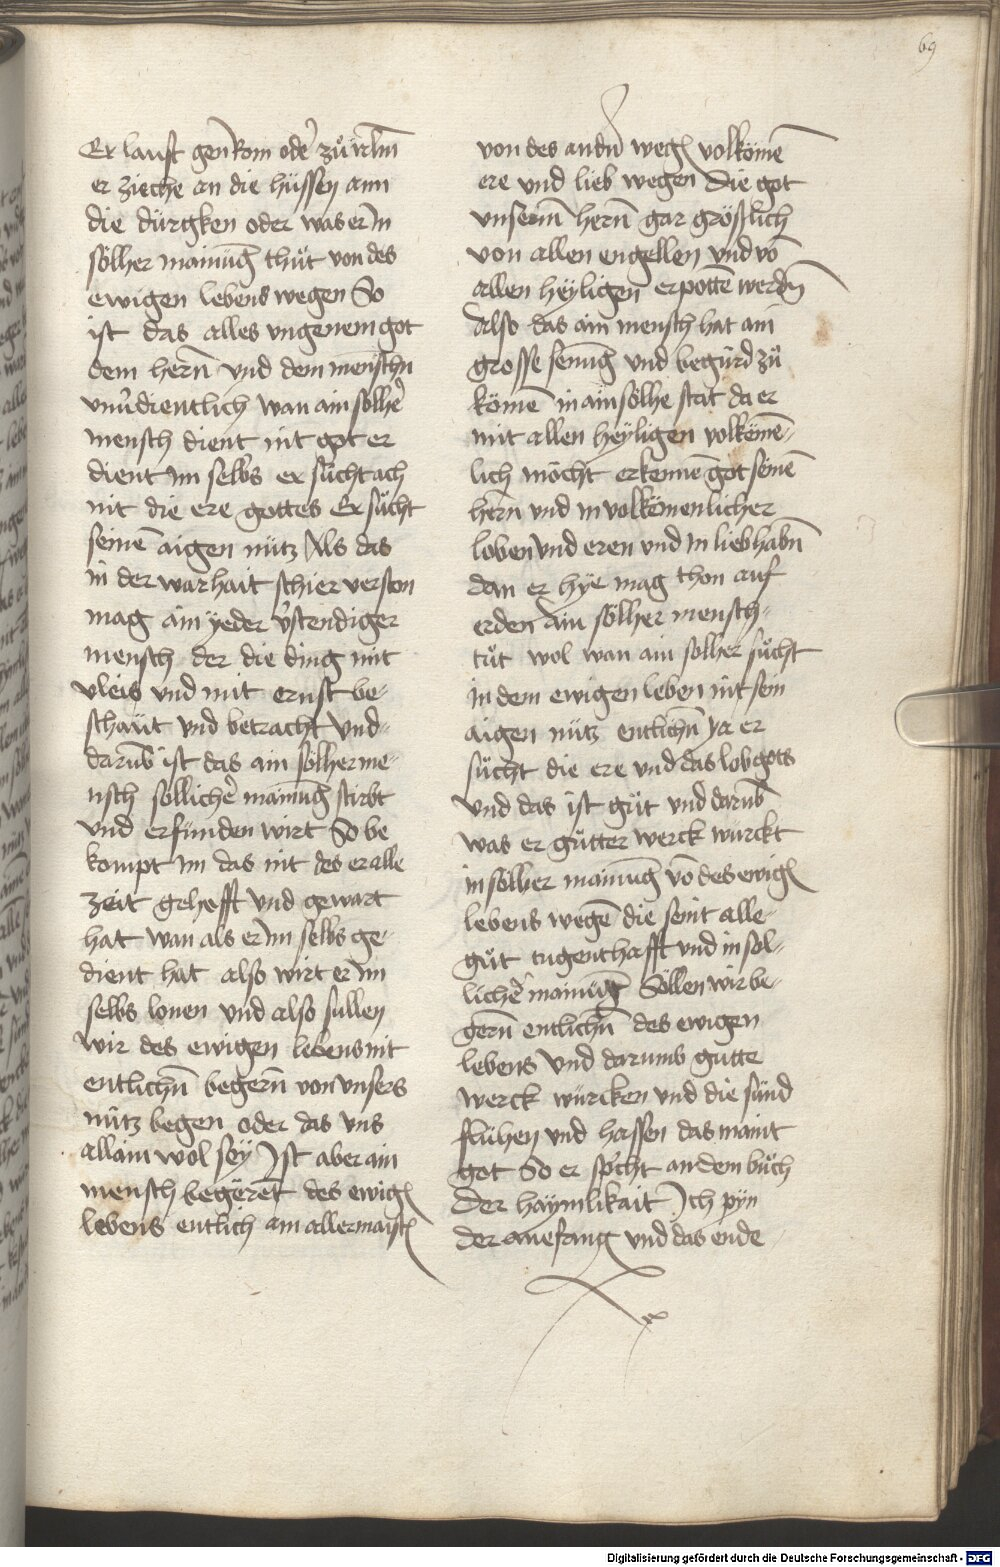 69
Er lauft gen Rom oder̉ zů irlm̄
er zieche an die hüssen ann
die dürgken oder was er In
sölher mainūg thüt von des
ewigen lebens wegen So
ist das alles vngenem got
dem hern̄ vnd dem menschn̄
vnu̓dientlich wan ain sölhe̓
mensch dient nit got er
dient im selbs er sücht ach
nit die ere gottes Er sücht
seinē aigen nütz Als das
in der warhait schier verston
mag ain yeder v̓stendiger
mensch der die ding mit
vleis vnd mit ernst be-
schaut vnd betracht vnd-
darūb ist das ain sölher me-
nsch söllichē mainūg stirbt
vnd erfunden wirt So be
kompt im das nit des er alle
zeit gehofft vnd gewart
hat wan als er im selbs ge-
dient hat also wirt er im
selbs lonen vnd also sullen
wir des ewigen lebens nit
entlichn̄ begern̄ von vnsers
nütz wegen oder das vns
allain wol sey Ist aber ain
mensch begeret̄ des ewigē
lebens entlich am allermaystē
von des andn̄ wegē volkömē
ere vnd lieb wegen Die got
vnserm hern̄ gar gröslich
von allen engellen vnd vō
allen heyligen erpottē werdn̄
Also das ain mensch hat ain
grosse senūg vnd begürd zů
kömē in ain sölhe stat da er
mit allen heyligen volkömē-
lich möcht erkennē got seinē
hern̄ vnd in volkömenlicher
loben vnd eren vnd in lieb habn̄
dan er hye mag thon auf
erden Ain sölher mensch-
tüt wol wan ain solher sücht
in dem ewigen leben nit sein
aigen nütz entlichn̄ ya er
sücht die ere vnd das lob gots
vnd das ist güt vnd darūb
was er gütter werck würckt
in sölher mainūg vō des ewigē
lebens wegē die seint alle-
güt tugenthafft vnd in sol-
lichē mainūg Söllen wir be-
gern̄ entlichn̄ des ewigen
lebens vnd darumb gutte
werck würcken vnd die sünd
fliühen vnd hassen das maint
got So er sp̓cht an dem büch
der haymlikait Ich pyn
der anefang vnd das ende
Digitalisierung gefördert durch die Deutsche Forschungsgemeinschaft - DFG